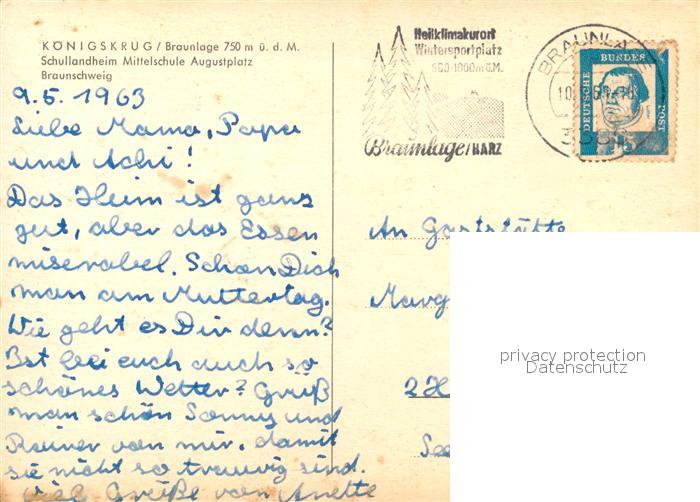 KÖNIGSKRUG / Braunlage 750 m ü. d. M.
Schullandheim Mittelschule Augustplatz
Braunschweig
9.5. 1963
Liebe Mama, Papa
und Achi!
Das Heim ist ganz
gut, aber das Essen
miserabel. Schon Dich
man am Muttertag.
Wie geht es Dir denn?
Ist bei euch auch so
schönes Wetter? Grüß
man schön Sonny und
Rainer von mir, damit
sie nicht so traurig sind.
Viel Grüße von Anette
Heilklimakurort
Wintersportplatz
560-1000m ü.M.
Braunlage/HARZ
BRAUNLA
DEUTSCHE
BUNDES
POST
15
An Gaststätte
Marg
2 H
See
privacy protection
Datenschutz